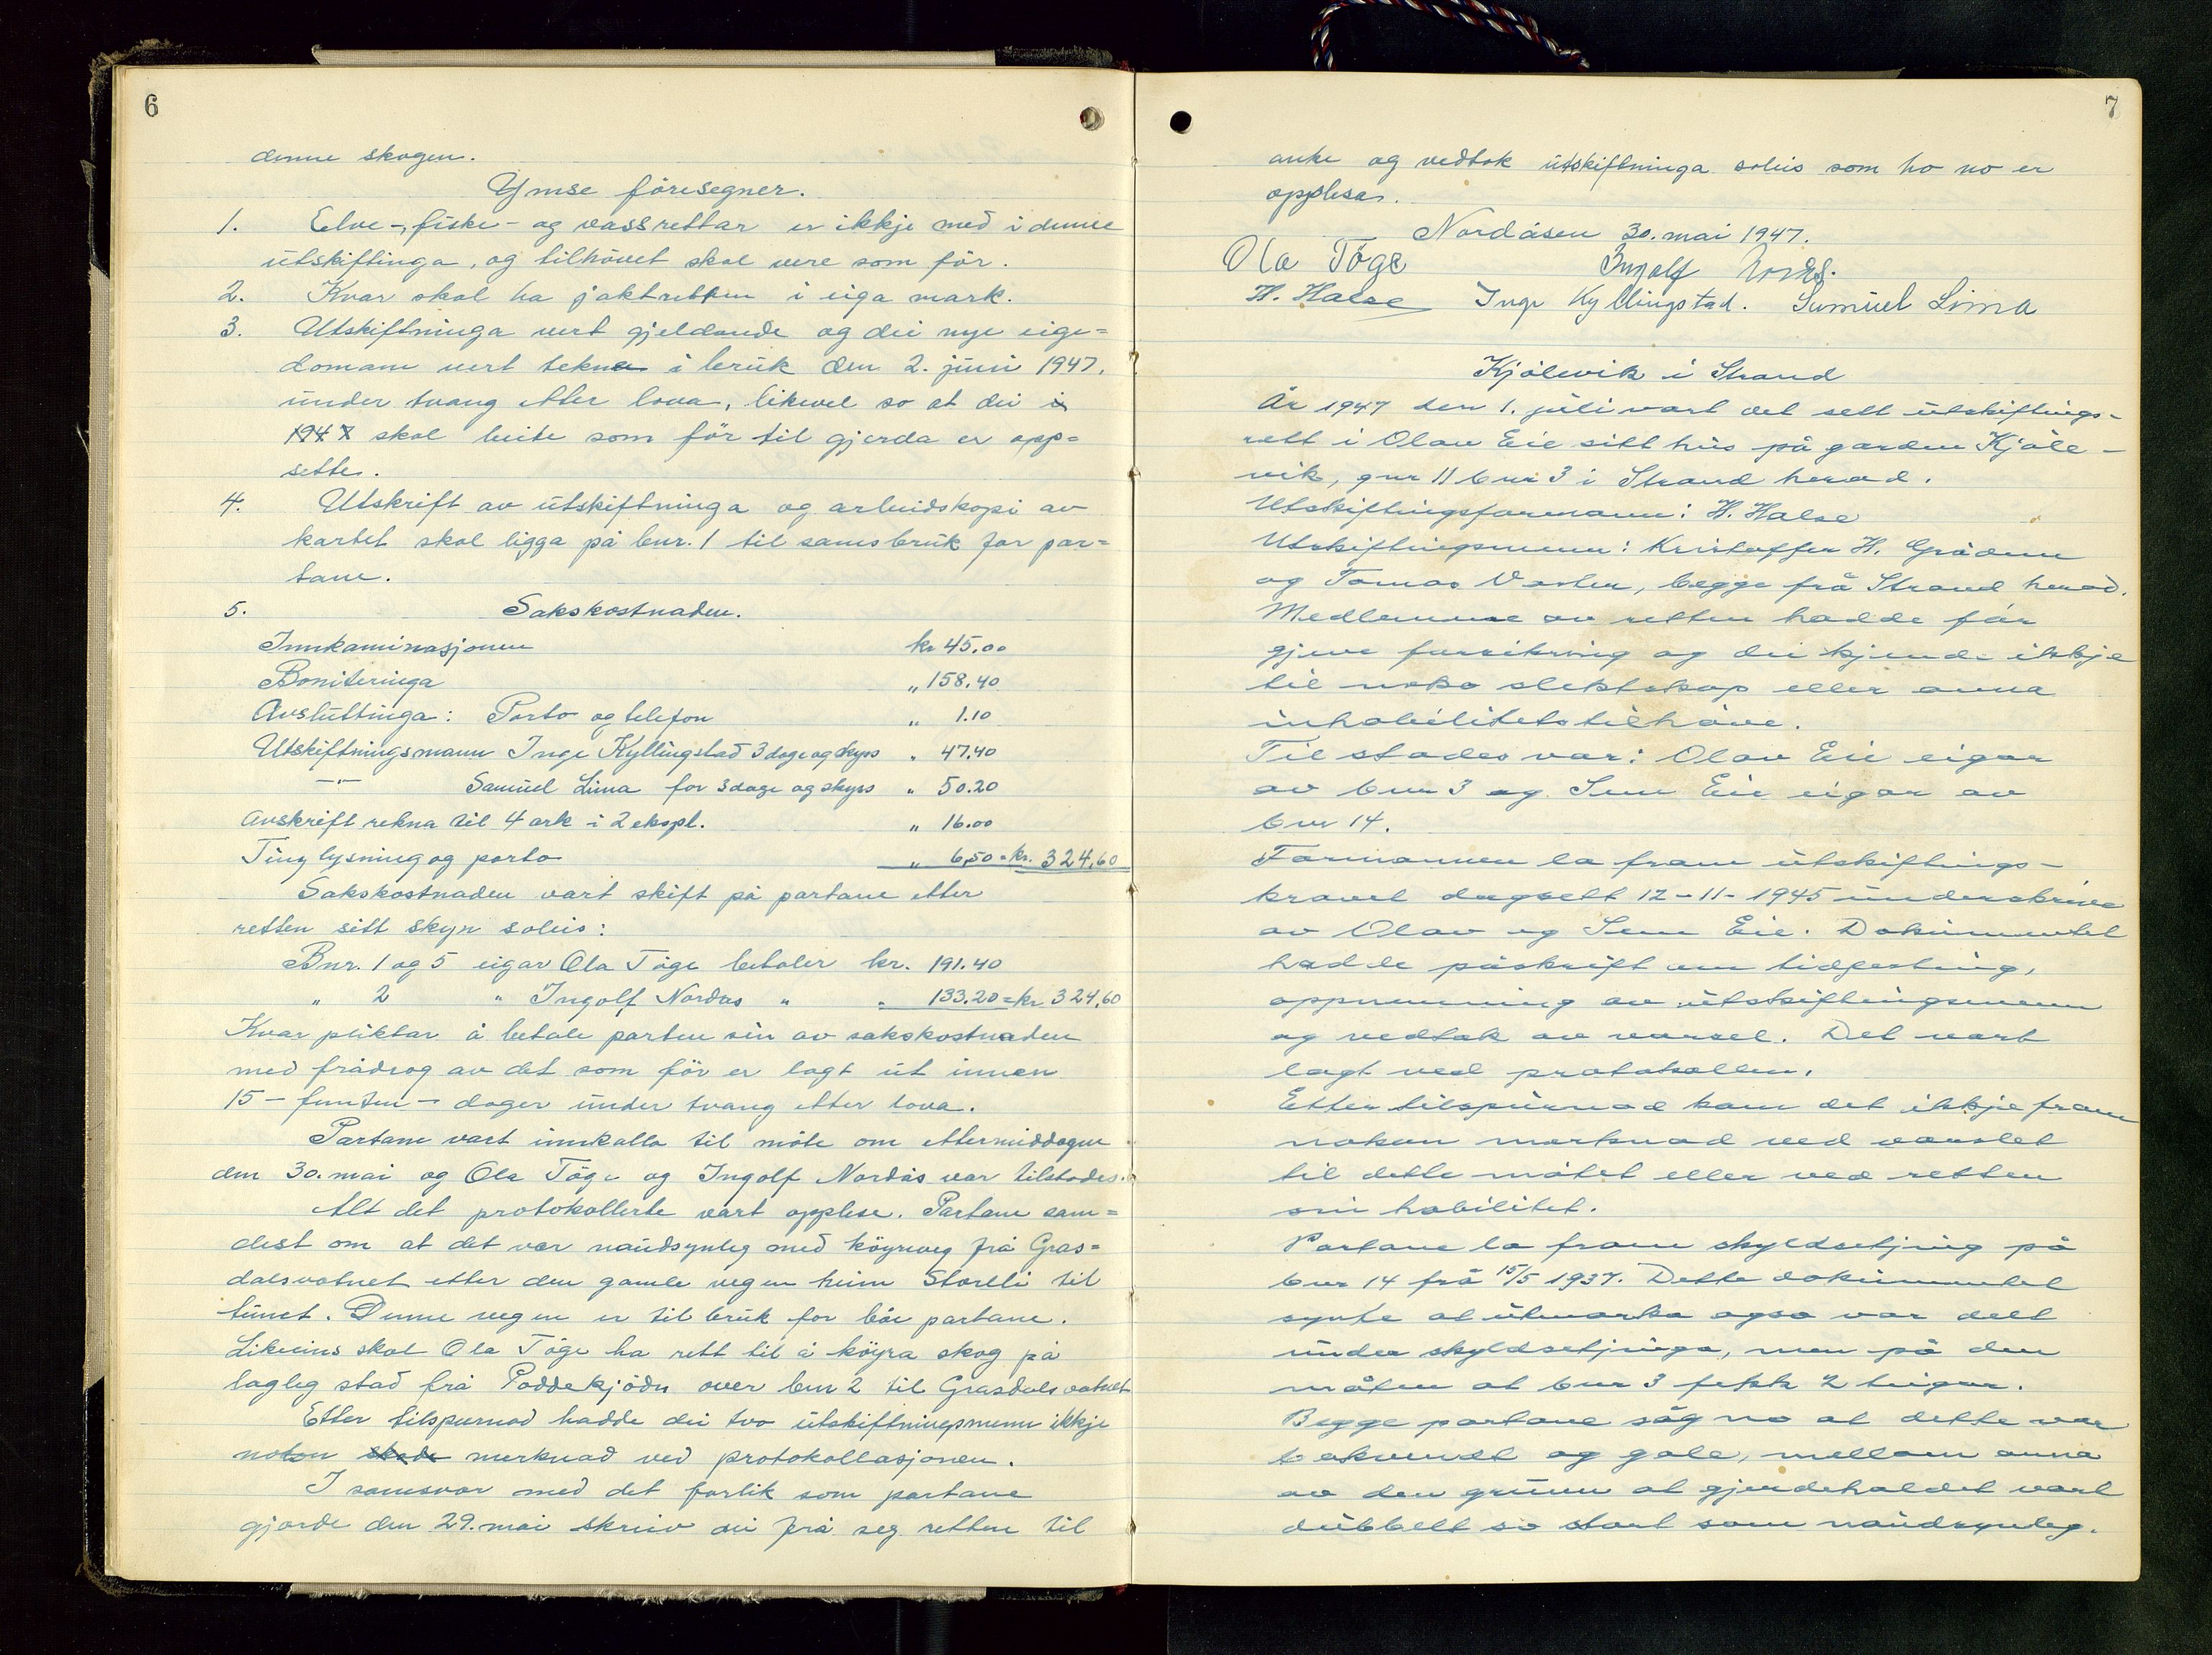 6
denne skogen.
Ymse föresegner.
1. Elve-, fiske- og vassrettar er ikkje med i denne
utskiftinga, og tilhövet skal vere som för.
2. Kvar skal ha jaktretten i eiga mark.
3. Utskiftninga vert gjeldande og dei nye eige=
domane vert tekne i bruk den 2. juni 1947.
under tvang etter lova, likevel so at dei i
1947 skal beite som för til gjerda er opp=
sette.
4. Utskrift av utskiftninga og arbeidskopi av
kartet skal ligga på bnr. 1 til samsbruk for par=
tane.
5. Sakskostnaden.
Innkaminasjonen kr 45.00
Boniteringa " 158.40
Avsluttinga: Porto og telefon " 1.10
Utskiftningsmann Inge Kyllingstad 3 dage og skyss " 47.40
-"- Samuel Lima for 3 dage og skyss " 50.20
Avskrift rekna til 4 ark i 2 ekspl. " 16.00
Tinglysning og porto " 6,50 = kr. 324,60
Sakskostnaden vart skift på partane etter
retten sitt skyn soleis:
Bnr. 1 og 5 eigar Ola Töge betaler kr. 191.40
" 2 " Ingolf Nordås " " 133.20 = kr 324,60
Kvar pliktar å betale parten sin av sakskostnaden
med frådrog av det som för er lagt ut innen
15 - femten - dager under tvang etter lova.
Partane vart innkalla til möte om ettermiddagen
den 30. mai og Ola Töge og Ingolf Nordås var tilstades.
Alt det protokollerte vart opplese. Partane sam=
dest om at det var naudsynleg med köyreveg frå Gras=
dalsvatnet etter den gamle vegen heim Storlli til
tunet. Denne vegen er til bruk for båe partane.
Likeeins skal Ola Töge ha rett til å köyra skog på
lagleg stad frå Poddekjödn over bnr 2 til Grasdalsvatnet
Etter tilspurnad hadde dei tvo utskiftningsmenn ikkje
noken skade merknad ved protokollasjonen.
I samsvar med det forlik som partane
gjorde den 29. mai skreiv dei frå seg retten til
7
anke og vedtok utskiftninga soleis som ho no er
opplesen.
Nordåsen 30. mai 1947.
Ola Töge Ingolf Nordås.
H. Halse Inge Kyllingstad. Samuel Lima
Kjölevik i Strand
År 1947 den 1. juli vart det sett utskiftings-
rett i Olav Eie sitt hus på garden Kjöle-
vik, gnr 11 bnr 3 i Strand herad.
Utskiftingsformann: H. Halse
Utskiftingsmenn: Kristoffer H. Gråden
og Tomas Vaster, begge frå Strand herad.
Medlemmene av retten hadde før
gjeve forsikring og dei kjende ikkje
til noko slektskap eller anna
inhabilitetstilhöve.
Til stades var: Olav Eie eigar
av bnr 3 og Sem Eie eigar av
bnr 14.
Formannen la fram utskiftings-
kravet dagsett 12-11-1945 underskrive
av Olav og Sem Eie. Dokumentet
hadde påskrift om tidfesting,
oppnemning av utskiftingsmenn
og vedtak av varsel. Det vart
lagt ved protokollen.
Etter tilspurnad kom det ikkje fram
nokon merknad ved varslet
til dette mötet eller ved retten
sin habilitet.
Partane la fram skyldsetjing på
bnr 14 frå 15/5 1937. Dette dokumentet
synte at utmarka også var delt
under skyldsetjinga, men på den
måten at bnr 3 fekk 2 teigar.
Begge partane såg no at dette var
bakvendt og gale, mellom anna
av den grunn at gjerdehaldet vart
dubbelt so stort som naudsynleg.